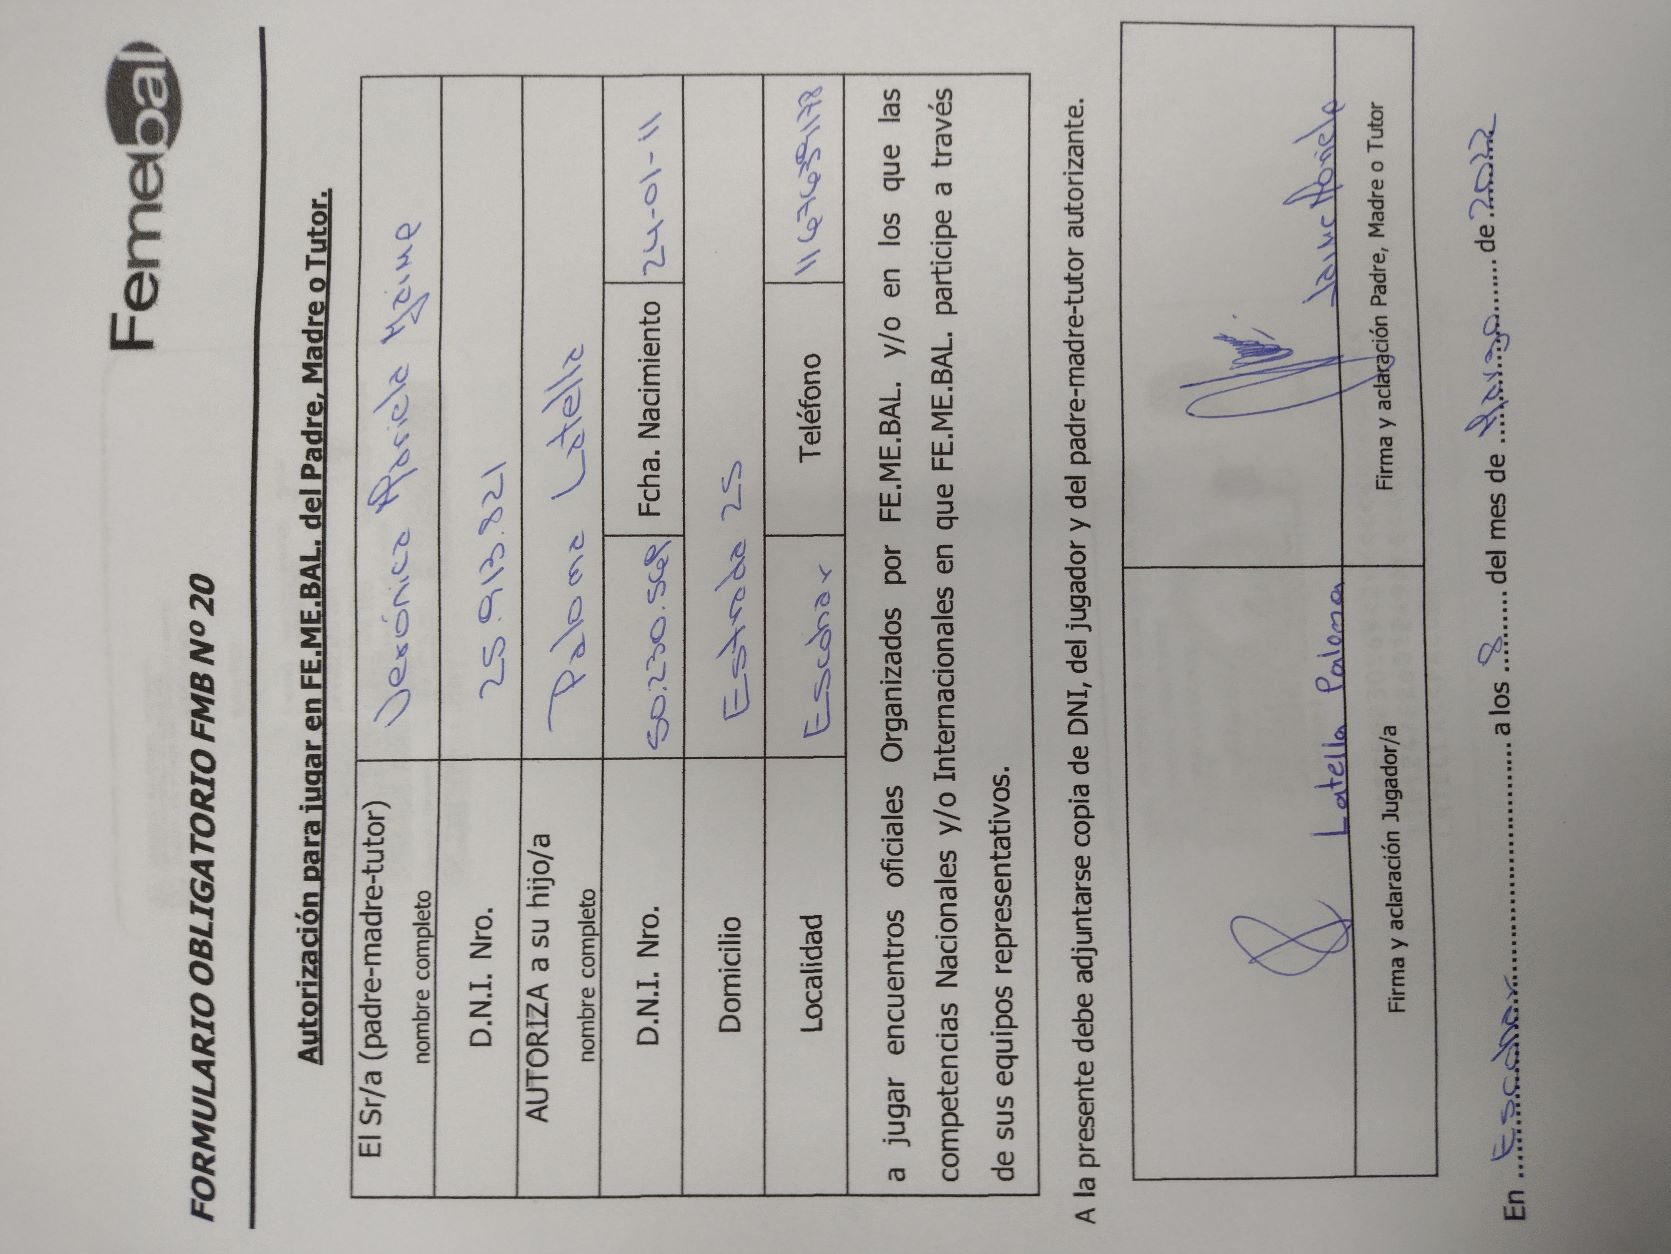 Femebal
FORMULARIO OBLIGATORIO FMB Nº 20
Autorización para jugar en FE.ME.BAL. del Padre, Madre o Tutor.
El Sr/a (padre-madre-tutor) Verónica Mariela Jaime
nombre completo
D.N.I. Nro. 25.913.821
AUTORIZA a su hijo/a Paloma Latella
nombre completo
D.N.I. Nro. 50.230.569 Fcha. Nacimiento 24-01-11
Domicilio Estrada 25
Localidad Escobar Teléfono
a jugar encuentros oficiales Organizados por FE.ME.BAL. y/o en los que las
competencias Nacionales y/o Internacionales en que FE.ME.BAL. participe a través
de sus equipos representativos.
A la presente debe adjuntarse copia de DNI, del jugador y del padre-madre-tutor autorizante.
Latella Paloma Jaime Mariela
Firma y aclaración Jugador/a Firma y aclaración Padre, Madre o Tutor
En Escobar a los 8 del mes de Marzo de 2022